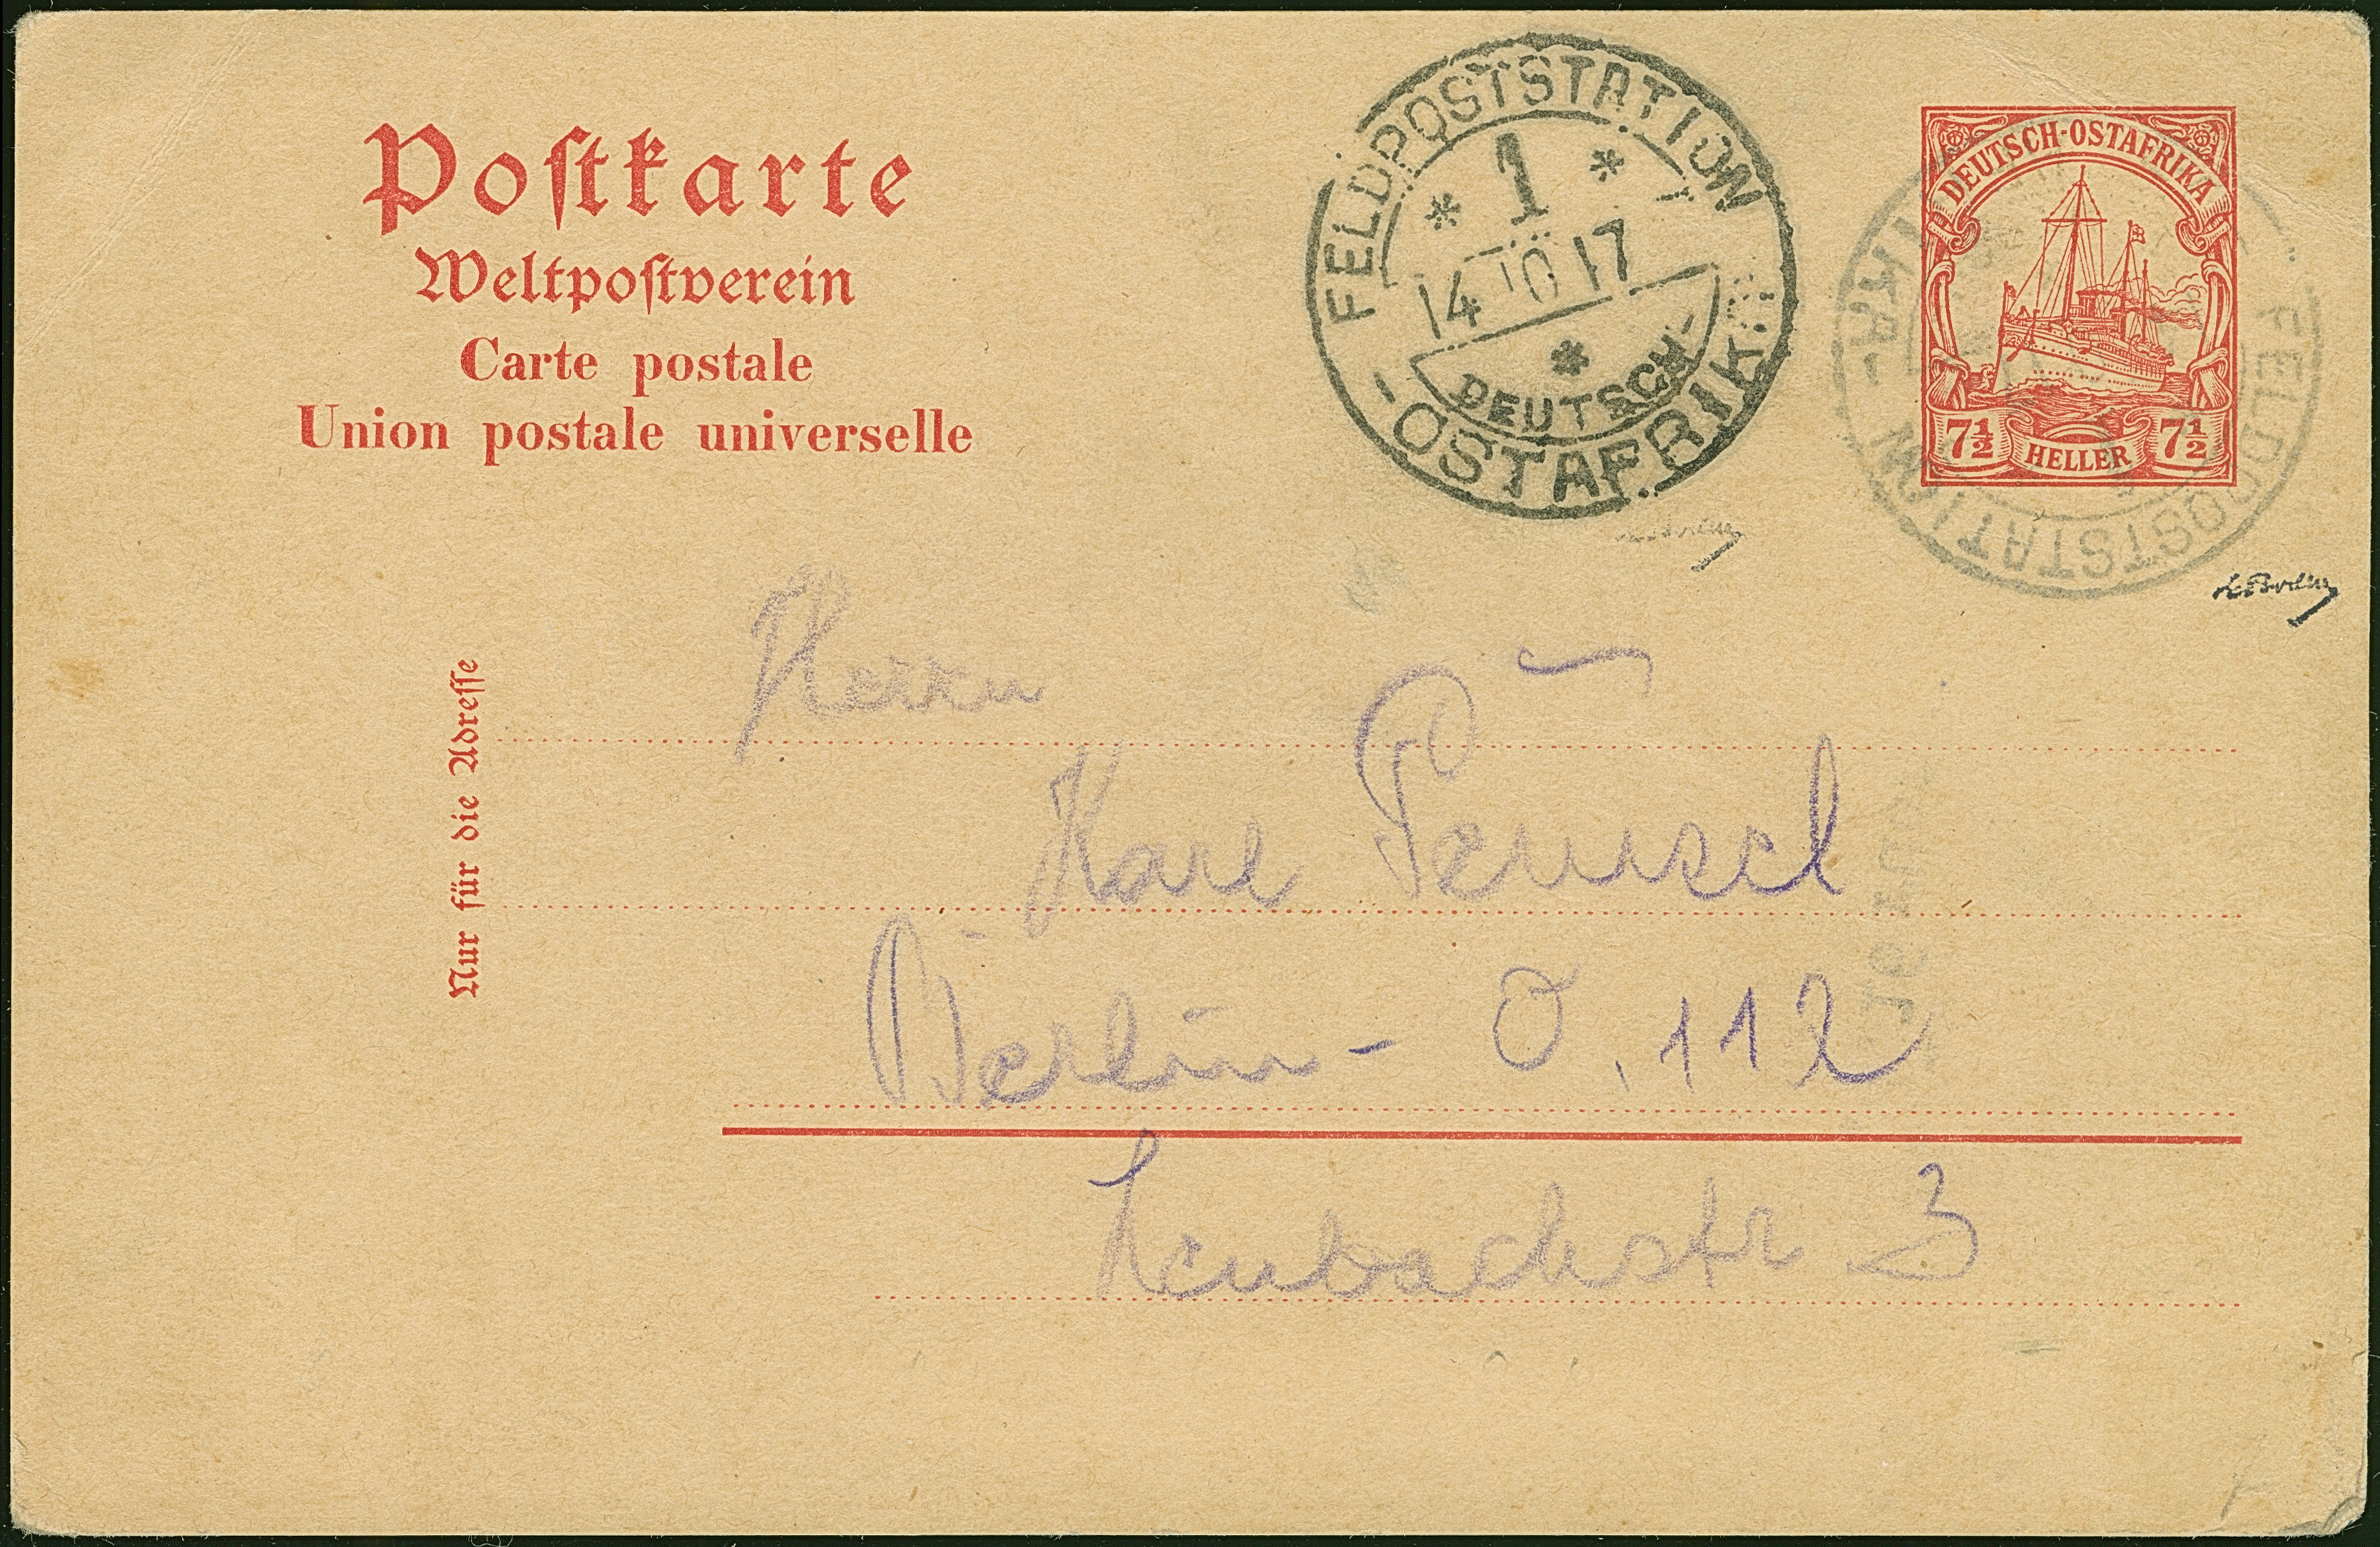 Postkarte
Weltpostverein
Carte postale
Union postale universelle
FELDPOSTSTATION
* 1 *
14 10 17
*
DEUTSCH-
-OSTAFRIKA
DEUTSCH-OSTAFRIKA
7½ HELLER 7½
FELDPOSTSTATION
Nur für die Adresse
Herrn
Karl
Berlin - O, 112
Lenbachstr 3